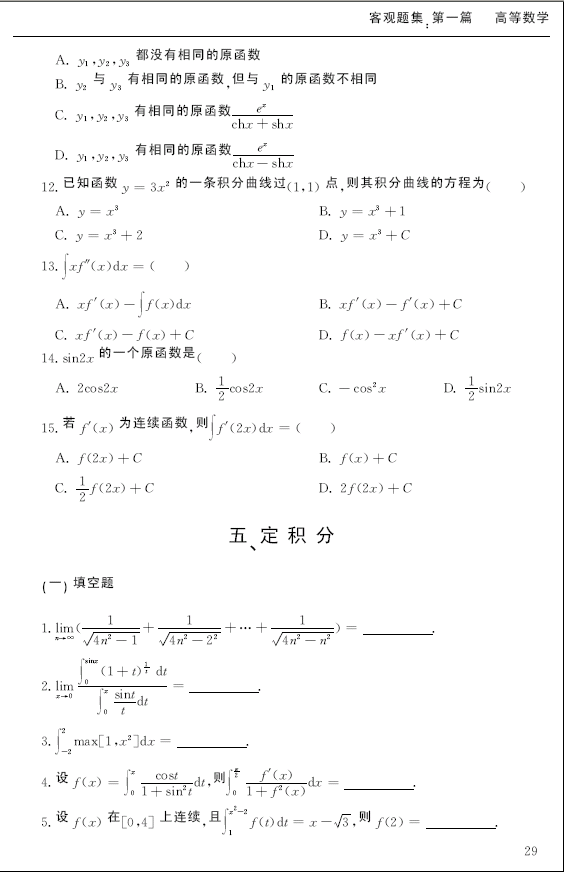 客观题集:第一篇 高等数学
A. y₁,y₂,y₃ 都没有相同的原函数
B. y₂ 与 y₃ 有相同的原函数,但与 y₁ 的原函数不相同
C. y₁,y₂,y₃ 有相同的原函数 eˣ/(chx + shx)
D. y₁,y₂,y₃ 有相同的原函数 eˣ/(chx − shx)
12. 已知函数 y = 3x² 的一条积分曲线过(1,1) 点,则其积分曲线的方程为( )
A. y = x³ B. y = x³ + 1
C. y = x³ + 2 D. y = x³ + C
13. ∫xf″(x)dx = ( )
A. xf′(x) − ∫f(x)dx B. xf′(x) − f′(x) + C
C. xf′(x) − f(x) + C D. f(x) − xf′(x) + C
14. sin2x 的一个原函数是( )
A. 2cos2x B. 1/2 cos2x C. − cos²x D. 1/2 sin2x
15. 若 f′(x) 为连续函数,则∫f′(2x)dx = ( )
A. f(2x) + C B. f(x) + C
C. 1/2 f(2x) + C D. 2f(2x) + C
五、定积分
(一) 填空题
1. lim n→∞ (1/√(4n² − 1) + 1/√(4n² − 2²) + ⋯ + 1/√(4n² − n²)) = ______.
2. lim x→0 ∫₀^sinx (1 + t)^(1/t) dt / ∫₀^x (sint/t)dt = ______.
3. ∫₋₂² max[1,x²]dx = ______.
4. 设 f(x) = ∫₀^x cost/(1 + sin²t) dt,则∫₀^(π/2) f′(x)/(1 + f²(x)) dx = ______.
5. 设 f(x) 在[0,4] 上连续,且∫₁^(x²−2) f(t)dt = x − √3,则 f(2) = ______.
29